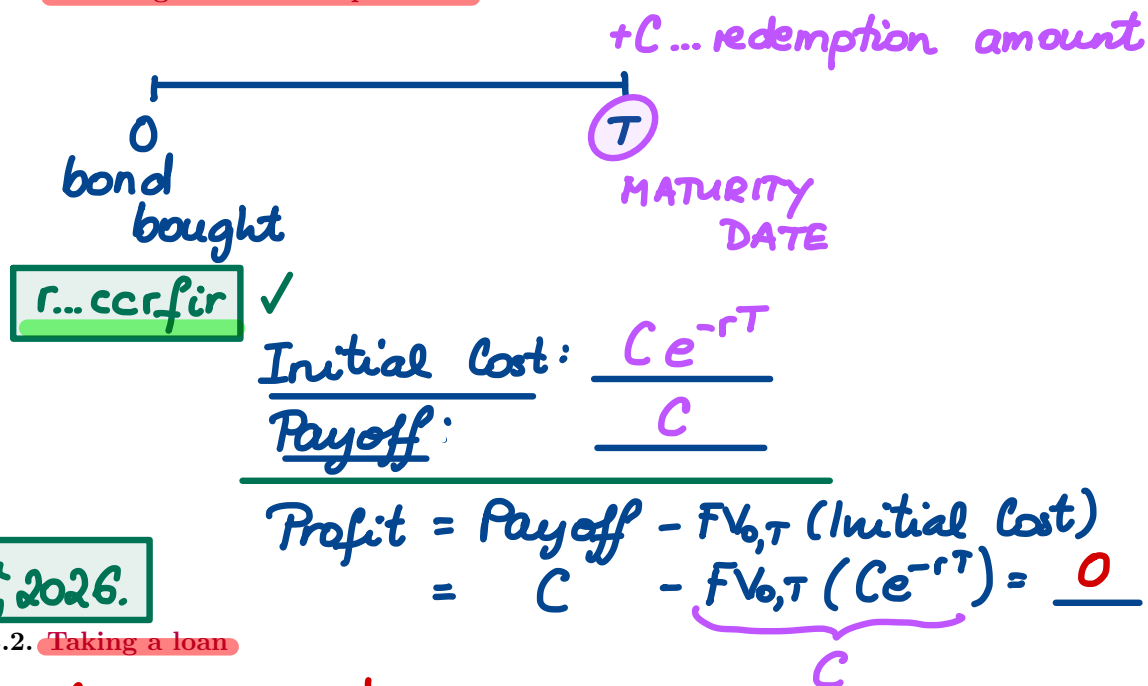 +C... redemption amount
0
T
bond
bought
MATURITY
DATE
r... ccrfir ✓
Initial Cost: Ce^{-rT}
Payoff: C
Profit = Payoff - FV_{0,T} (Initial Cost)
= C - FV_{0,T} (Ce^{-rT}) = 0
2026.
.2. Taking a loan
C